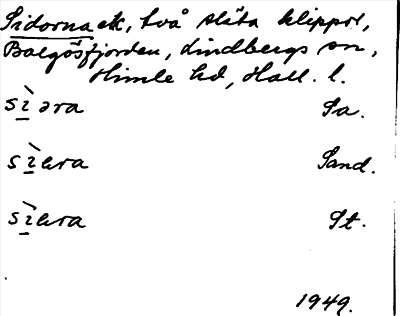 Sidorna ek, två släta klippor,
Balgösfjorden, Lindbergs sn,
Himle hd, Hall. l.
sìəra Sa.
sìɐra Sand.
sìɐra St.
1949.